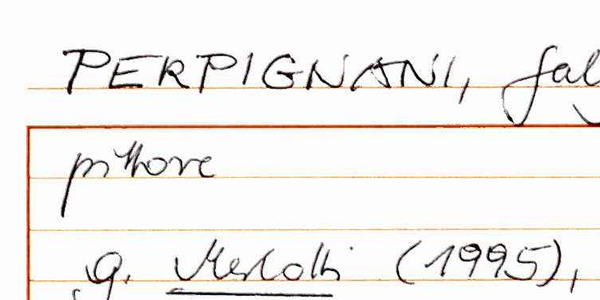 PERPIGNANI, Gal
pittore
G. Merlotti (1995),